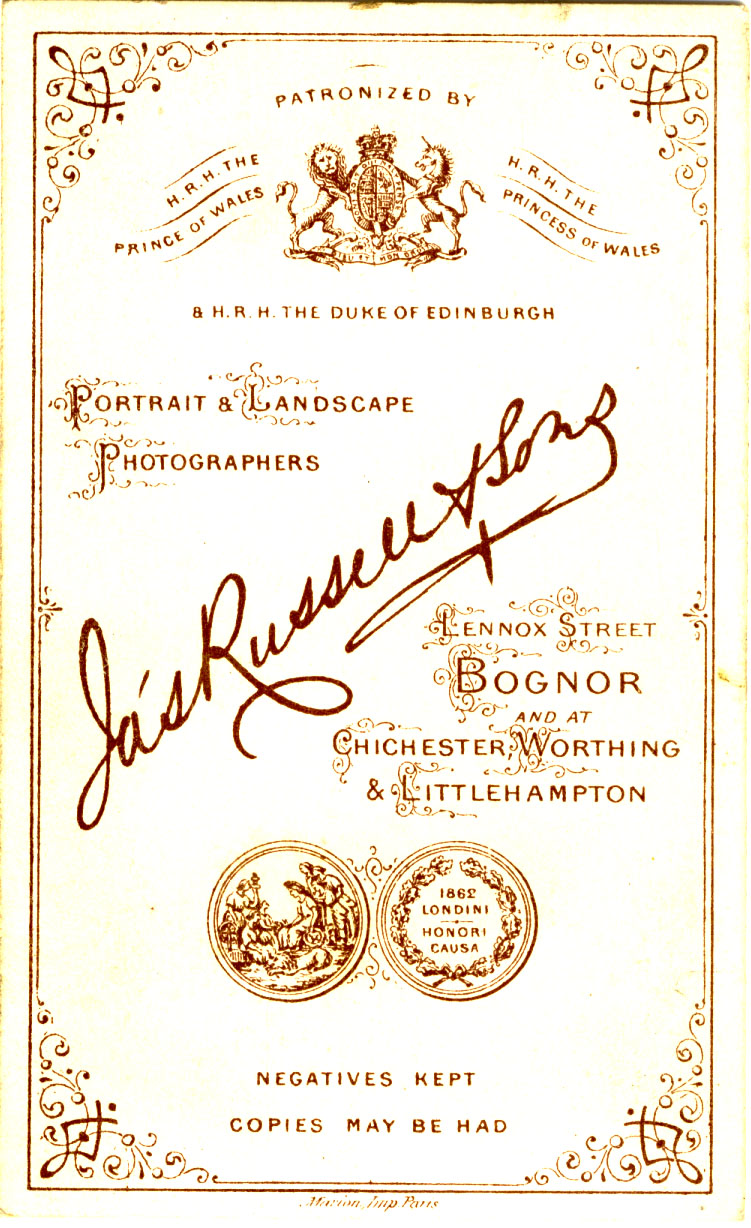 PATRONIZED BY
H.R.H. THE
PRINCE OF WALES
H.R.H. THE
PRINCESS OF WALES
& H.R.H. THE DUKE OF EDINBURGH
PORTRAIT & LANDSCAPE
PHOTOGRAPHERS
Ja's Russell & Sons
LENNOX STREET
BOGNOR
AND AT
CHICHESTER, WORTHING
& LITTLEHAMPTON
1862
LONDINI
HONORI
CAUSA
NEGATIVES KEPT
COPIES MAY BE HAD
Marion, Imp. Paris